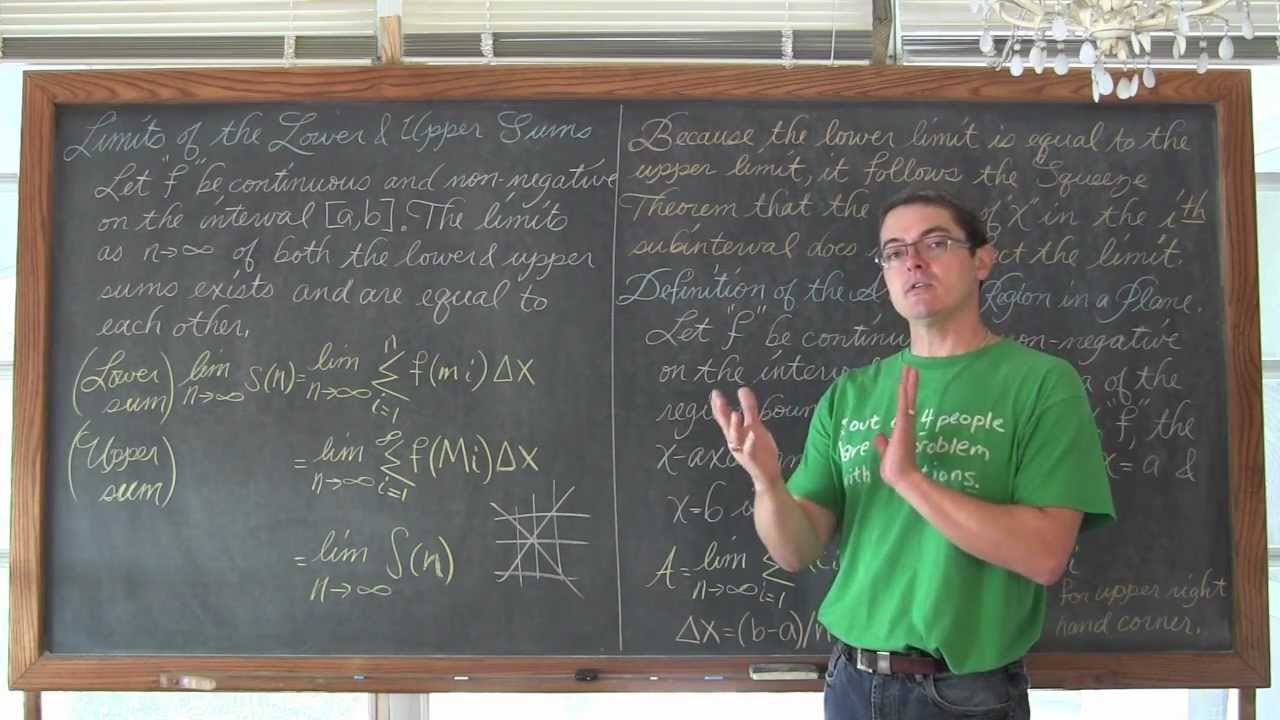 Limits of the Lower & Upper Sums
Let "f" be continuous and non-negative
on the interval [a,b]. The limits
as n→∞ of both the lower & upper
sums exists and are equal to
each other.
(Lower sum) lim n→∞ s(n) = lim n→∞ n Σ i=1 f(mi)Δx
(Upper sum) = lim n→∞ ∞ Σ i=1 f(Mi)Δx
= lim n→∞ S(n)
Because the lower limit is equal to the
upper limit, it follows the "Squeeze
Theorem that the of "x" in the ith
subinterval does the limit.
Definition of the Region in a Plane.
Let "f" be non-negative
on the
of the
"f", the
x= a &
x=b
A= lim n→∞ Σ i=1
for upper right
Δx=(b-a)/n
hand corner.
out 4 people
problem